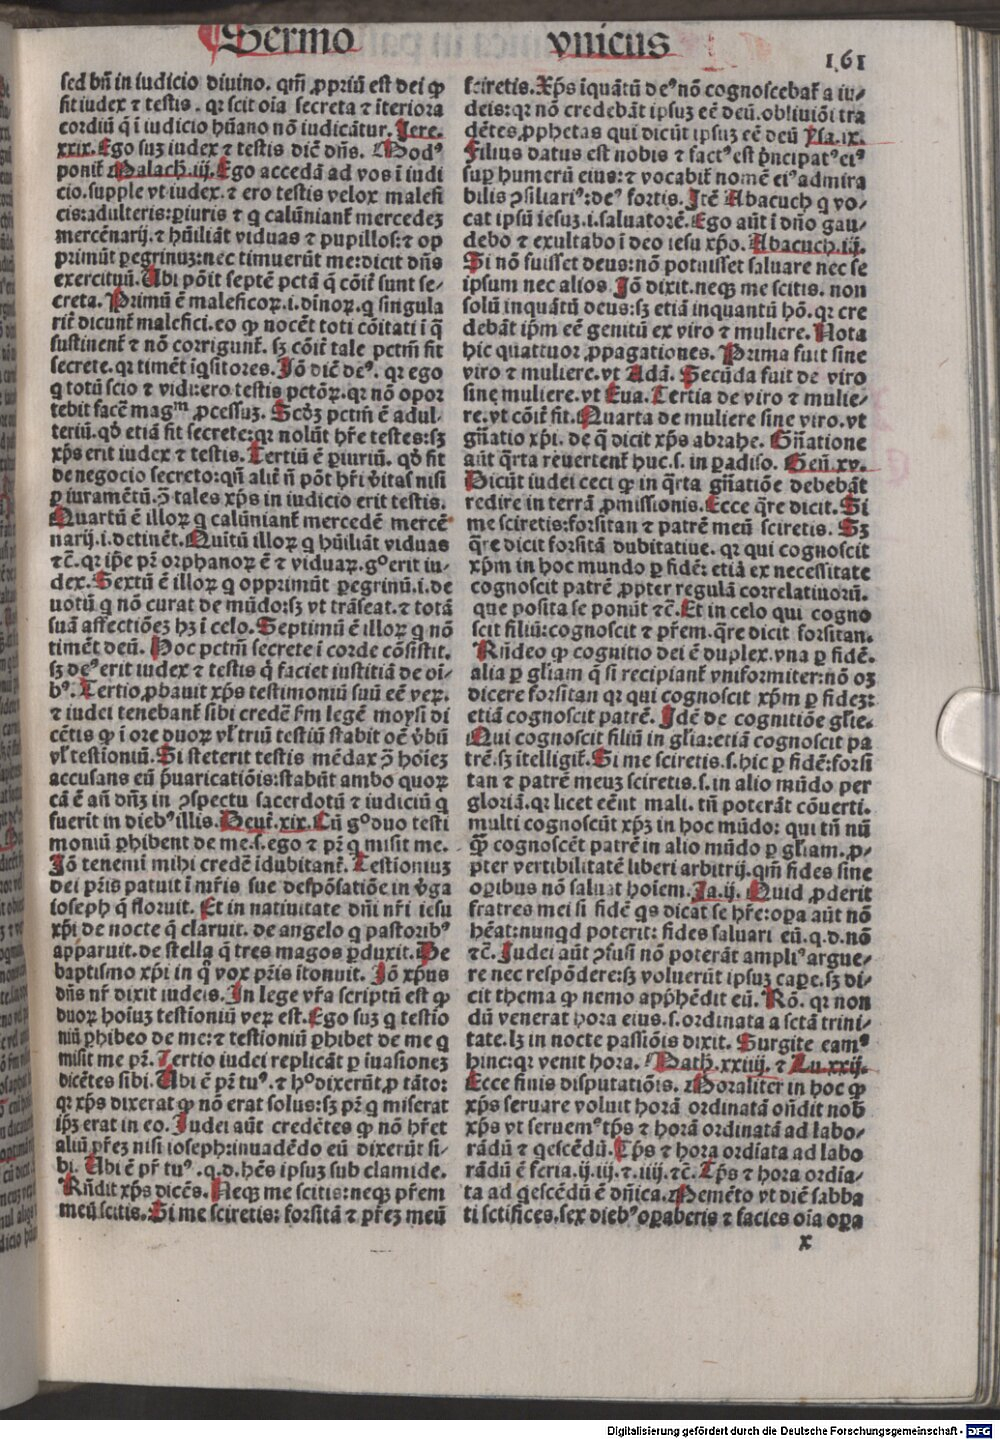 Sermo vnicus
161
sed bñ in iudicio diuino. qm̃ ꝓpriũ est dei ꝙ
sit iudex ⁊ testis. qꝛ scit oĩa secreta ⁊ ĩteriora
cordiũ q̃ ĩ iudicio hũano nõ iudicãtur. Jere.
xxix. Ego suꝫ iudex ⁊ testis dicẽ dñs.
Malach. iij. Ego accedã ad vos ĩ iudi
cio. supple vt iudex. ⁊ ero testis velox malefi
cis: adulteris: ꝑiuris ⁊ q calũniant̃ mercedeꝫ
mercẽnarij. ⁊ hũiliãt viduas ⁊ pupillos: ⁊ op
primũt ꝑegrinuꝫ: nec timuerũt me: dicit dñs
exercituũ. Ubi põit septẽ pctã q̃ cõit̃ sunt se⸗
creta. Primũ ẽ maleficoꝝ. i. diĩoꝝ. q singula
rit̃ dicunt̃ malefici. eo ꝙ nocẽt toti cõitati ĩ q̃
sustinent̃ ⁊ nõ corrigunt̃. sꝫ cõit̃ tale pctm̃ fit
secrete. qꝛ timẽt ĩq̃sitores. Jõ dicẽ deꝰ. qꝛ ego
q totũ scio ⁊ vidi: ero testis pctõꝝ. qꝛ nõ opor
tebit facẽ mag̃ ꝓcessuꝫ. Scdꝫ pctm̃ ẽ adul⸗
teriũ. qd̓ etiã fit secrete: qꝛ nolũt hr̃e testes: sꝫ
xp̃s erit iudex ⁊ testis. Tertiũ ẽ ꝑiuriũ. qd̓ fit
de negocio secreto: qñ alit̃ ñ põt hr̃i v̓itas nisi
ꝑ iuramẽtũ. ꝯ̃ tales xp̃s in iudicio erit testis.
Quartũ ẽ illoꝝ q calũniant̃ mercedẽ mercẽ
narij. i. detinẽt. Quĩtũ illoꝝ q hũiliãt viduas
⁊c̃. qꝛ ip̃e pr̃ orphanoꝝ ẽ ⁊ viduaꝝ. gͦ erit iu⸗
dex. Sextũ ẽ illoꝝ q opprimũt ꝑegrinũ. i. de
uotũ q nõ curat de mũdo: sꝫ vt trãseat. ⁊ totã
suã affectiõeꝫ hꝫ ĩ celo. Septimũ ẽ illoꝝ q nõ
timẽt deũ. Hoc pctm̃ secrete ĩ corde cõsistit.
sꝫ deꝰ erit iudex ⁊ testis q̃ faciet iustitiã de oĩ⸗
bꝰ. Tertio ꝓbauit xp̃s testimoniũ suũ eẽ veꝝ.
⁊ iudei tenebant̃ sibi credẽ fm legẽ moysi di
cẽtis ꝙ ĩ ore duoꝝ vl̓ triũ testiũ stabit oẽ v̓bũ
vl̓ testioniũ. Si steterit testis mẽdax ꝯ̃ hõieꝫ
accusans eũ p̃uaricatiõis: stabũt ambo quoꝝ
cã ẽ añ dñꝫ in ꝯspectu sacerdotũ ⁊ iudiciũ q
fuerit in diebꝰ illis. Deut̃. xix. Cũ gͦ duo testi
moniũ ꝑhibent de me. s. ego ⁊ pr̃ q misit me.
Jõ tenemĩ mihi credẽ ĩdubitant̃. Testioniuꝫ
dei pr̃is patuit ĩ mr̃is sue despõsatiõe in v̓ga
ioseph q̃ floruit. Et in natiuitate dñi nr̃i iesu
xp̃i de nocte q̃ claruit. de angelo q pastoribꝰ
apparuit. de stella q̃ tres magos ꝑduxit. De
baptismo xp̃i in q̃ vox pr̃is ĩtonuit. Jõ xp̃us
dñs nr̃ dixit iudeis. In lege vr̃a scriptũ est ꝙ
duoꝝ hoĩuꝫ testioniũ veꝝ est. Ego suꝫ q testio
niũ ꝑhibeo de me: ⁊ testioniũ ꝑhibet de me q
misit me pr̃. Tertio iudei replicãt ꝑ inuasioneꝫ
dicẽtes sibi. Ubi ẽ pr̃ tuꝰ. ⁊ hͦ dixerũt ꝓ tãto:
qꝛ xp̃s dixerat ꝙ nõ erat solus: sꝫ pr̃ q miserat
ip̃ꝫ erat in eo. Judei aũt credẽtes ꝙ nõ hr̃et
aliũ pr̃eꝫ nisi ioseph: inuadẽdo eũ dixerũt si⸗
bi. Ubi ẽ pr̃ tuꝰ. q. d. hẽs ipsuꝫ sub clamide.
Rñdit xp̃s dicẽs. Neqꝫ me scitis: neqꝫ pr̃em
meũ scitis. Si me sciretis: forsitã ⁊ pr̃eꝫ meũ
sciretis. Xp̃s iquãtũ deꝰ nõ cognoscebat̃ a iu⸗
deis: qꝛ nõ credebãt ipsuꝫ eẽ deũ. obliuiõi tra
dẽtes ꝓphetas qui dicũt ipsuꝫ eẽ deũ Ysa. ix.
Filius datus est nobis ⁊ factꝰ est p̃ncipatꝰ eiꝰ
suꝑ humerũ eius: ⁊ vocabit̃ nomẽ eiꝰ admira
bilis ꝯsiliariꝰ: deꝰ fortis. Itẽ Abacuch q vo⸗
cat ipsũ iesuꝫ. i. saluatorẽ. Ego aũt ĩ dño gau⸗
debo ⁊ exultabo ĩ deo iesu xp̃o. Abacuch. iij.
Si nõ fuisset deus: nõ potuisset saluare nec se
ipsum nec alios. Jõ dixit. neqꝫ me scitis. non
solũ inquãtũ deus: sꝫ etiã inquantũ hõ. qꝛ cre
debãt ip̃m eẽ genitũ ex viro ⁊ muliere. Nota
hic quattuor ꝓpagationes. Prima fuit sine
viro ⁊ muliere. vt Adã. Secũda fuit de viro
sine muliere. vt Eua. Tertia de viro ⁊ mulie⸗
re. vt cõit̃ fit. Quarta de muliere sine viro. vt
gñatio xp̃i. de q̃ dicit xp̃s abrahe. Gñatione
aũt q̃rta reuertent̃ huc. s. in ꝑadiso. Geñ. xv.
Dicũt iudei ceci ꝙ in q̃rta gñatiõe debebãt
redire in terrã ꝓmissionis. Ecce q̃re dicit. Si
me sciretis: forsitan ⁊ patrẽ meũ sciretis. Sꝫ
q̃re dicit forsitã dubitatiue. qꝛ qui cognoscit
xp̃m in hoc mundo ꝑ fidẽ: etiã ex necessitate
cognoscit patrẽ ꝓpter regulã correlatiuorũ.
que posita se ponũt ⁊c̃. Et in celo qui cogno
scit filiũ: cognoscit ⁊ pr̃em. q̃re dicit forsitan.
Rñdeo ꝙ cognitio dei ẽ duplex. vna ꝑ fidẽ.
alia ꝑ gl̓iam q̃ si recipiant̃ vniformiter: nõ oꝫ
dicere forsitan qꝛ qui cognoscit xp̃m ꝑ fideꝫ:
etiã cognoscit patrẽ. Idẽ de cognitiõe gl̓ie.
Qui cognoscit filiũ in gl̓ia: etiã cognoscit pa
trẽ. sꝫ ĩtelligit̃. Si me sciretis. s. hic ꝑ fidẽ: forsi
tan ⁊ patrẽ meuꝫ sciretis. s. in alio mũdo per
gloriã. qꝛ licet eẽnt mali. tñ poterãt cõuerti.
multi cognoscũt xp̃ꝫ in hoc mũdo: qui tñ nũ
ꝙ̃ cognoscẽt patrẽ in alio mũdo ꝑ gl̓iam. ꝓ⸗
pter vertibilitatẽ liberi arbitrij. qm̃ fides sine
oꝑibus nõ saluat hoĩem. Ja. ij. Quid ꝓderit
fratres mei si fidẽ qs dicat se hr̃e: oꝑa aũt nõ
hẽat: nunqd poterit: fides saluari eũ. q. d. nõ
⁊c̃. Judei aũt ꝯfusi nõ poterãt ampliꝰ argue⸗
re nec respõdere: sꝫ voluerũt ipsuꝫ caꝑe. sꝫ di⸗
cit thema ꝙ nemo app̃hẽdit eũ. Rõ. qꝛ non
dũ venerat hora eius. s. ordinata a sctã trini⸗
tate. lꝫ in nocte passiõis dixit. Surgite eamꝰ
hinc: qꝛ venit hora. Math̃. xxiiij. ⁊ Lu. xxij.
Ecce finis disputatiõis. Moraliter in hoc ꝙ
xp̃s seruare voluit horã ordinatã oñdit nob̃
xp̃s vt seruemꝰ tp̃s ⁊ horã ordinatã ad labo⸗
rãdũ ⁊ qescẽdũ. Tp̃s ⁊ hora ordĩata ad labo
rãdũ ẽ feria. ij. iij. ⁊. iiij. ⁊c̃. Tp̃s ⁊ hora ordĩa⸗
ta ad qescẽdũ ẽ dñica. Memẽto vt diẽ sabba
ti sctifices. sex diebꝰ oꝑaberis ⁊ facies oĩa oꝑa
x
Digitalisierung gefördert durch die Deutsche Forschungsgemeinschaft - DFG